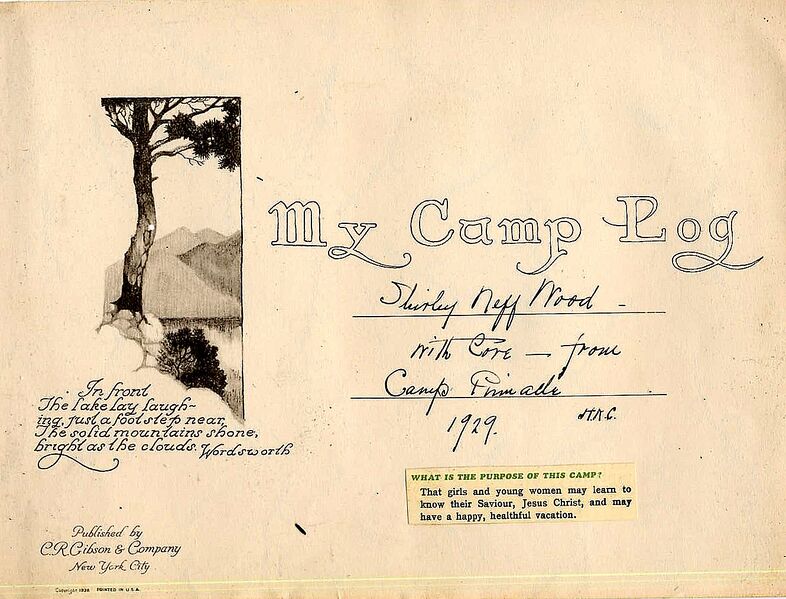 My Camp Log
Shirley Neff Wood -
with Love — from
Camp
1929.
In front
The lake lay laugh-
ing, just a foot step near,
The solid mountains shone,
bright as the clouds. Wordsworth
WHAT IS THE PURPOSE OF THIS CAMP?
That girls and young women may learn to
know their Saviour, Jesus Christ, and may
have a happy, healthful vacation.
Published by
C.R. Gibson & Company
New York City
Copyright 1928 PRINTED IN U.S.A.